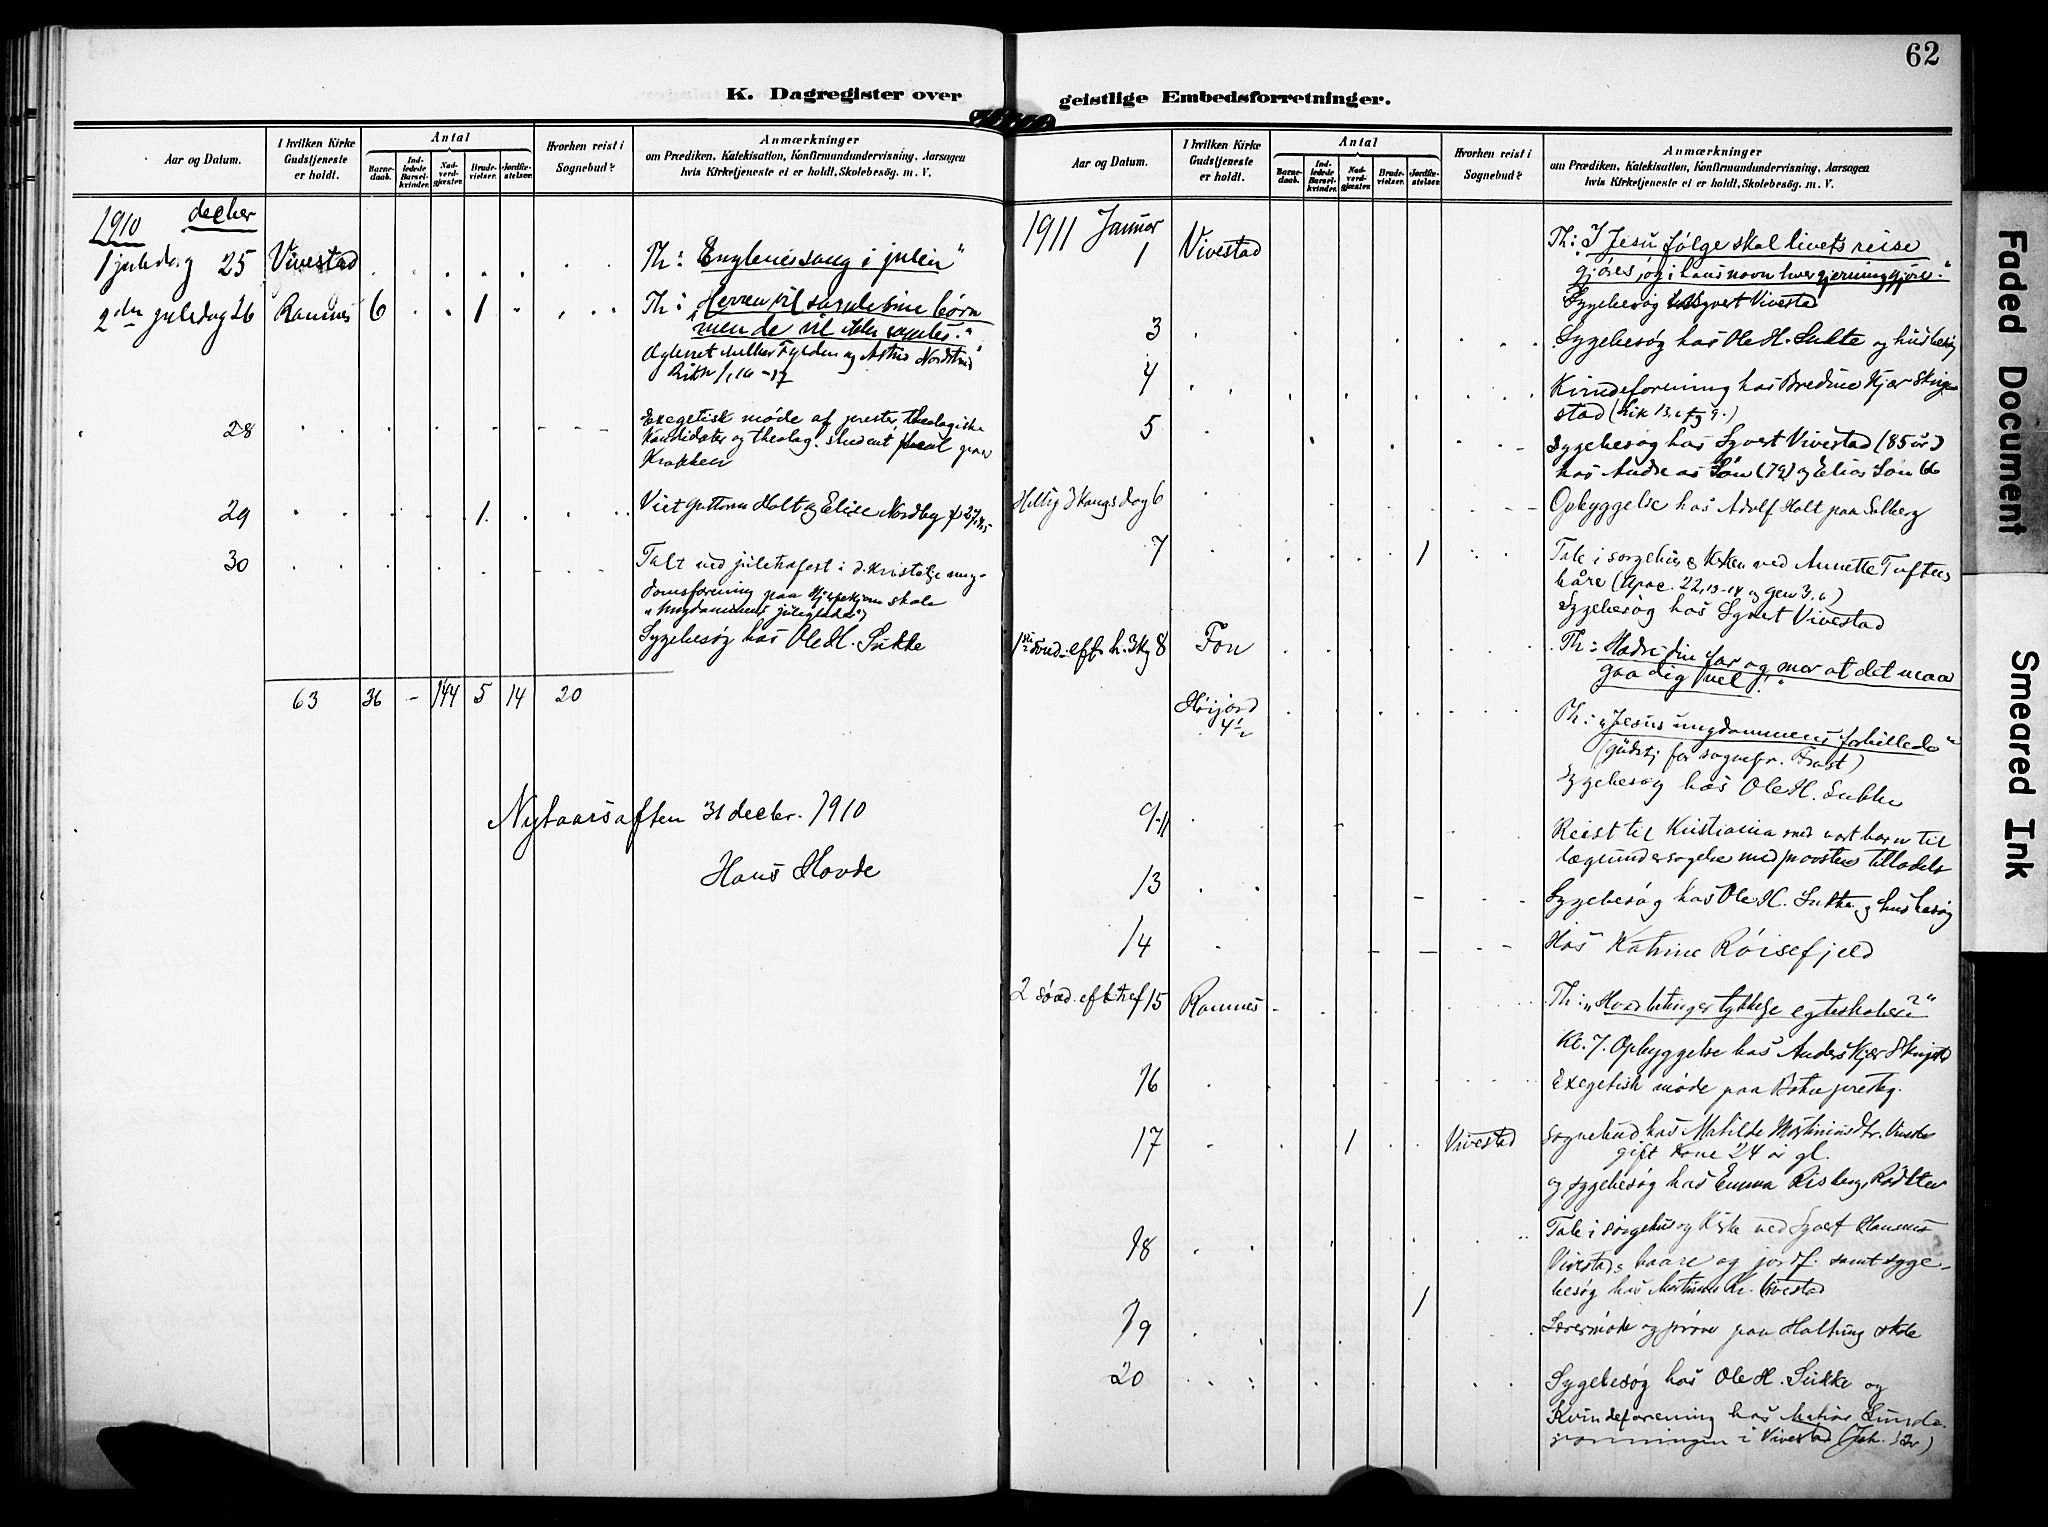 62
K. Dagregister over geistlige Embedsforretninger.
Aar og Datum.
I hvilken Kirke Gudstjeneste er holdt.
Antal
Barnedaab.
Indledede Barselkvinder.
Nadverdgjæster.
Brudevielser.
Jordfæstelser.
Hvorhen reist i Sognebud?
Anmærkninger
om Prædiken, Katekisation, Konfirmandundervisning, Aarsagen
hvis Kirketjeneste ei er holdt, Skolebesøg. m. V.
1910 decbr
1 juledag 25 Vivestad Th: Englenes sang i julen"
2den juledag 26 Ramnes 6 1 Th: Herren vil samle sine børn
men de vil ikke samles."
og Astrid Nordstrid
28 Exegetisk møde af prester, theologiske
Kandidater og theolog. student paa
29 1 Viet Guttorm Holt og Elise Nordby
30 Talt ved juletrafest i d. kristelge ung-
domsforening paa skole
"Ungdommens juleglæde"
Sygebesøg hos Ole H. Sukke
63 36 - 144 5 14 20
Nytaarsaften 31 decbr. 1910
Hans Hovde
Aar og Datum.
I hvilken Kirke Gudstjeneste er holdt.
Antal
Barnedaab.
Indledede Barselkvinder.
Nadverdgjæster.
Brudevielser.
Jordfæstelser.
Hvorhen reist i Sognebud?
Anmærkninger
om Prædiken, Katekisation, Konfirmandundervisning, Aarsagen
hvis Kirketjeneste ei er holdt, Skolebesøg. m. V.
1911 Januar
1 Vivestad Th: I Jesu følge skal livets reise
gjøres, og i hans navn hver gjerning gjøres."
Sygebesøg Syvert Vivestad
3 Sygebesøg hos Ole H. Sukke og husbesøg
4 Kvindeforening hos Bredine Kjær Skinge-
stad
5 Sygebesøg hos Syvert Vivestad (85 år)
hos Andreas Søn (79) og Elias Søn 66
Hellig 3 Kongs dag 6 Opbyggelse hos Adolf Holt paa Solberg
7 1 Tale i sorgehus & Kirken ved Annette Toftes
båre (Apoc. 22,13-14 og gen 3,)
Sygebesøg hos Syvert Vivestad
1ste sønd. eft. h. 3kg 8 Fon Th: Hædre din far og mor at det maa
gaa dig vel!"
Høijord
4½ Th: "Jesus ungdommens forbillede"
(gudstj for sognepr. Frost)
Sygebesøg hos Ole H. Sukke
9-11 Reist til Kristiania med vort barn til
lægeundersøgelse med provstens tilladelse
13 Sygebesøg hos Ole H. Sukke og husbesøg
14 Hos Katrine Røisefjeld
2 sønd. eft tref 15 Ramnes Th: "Hvad betinger lykkelige egteskaber?"
Kl. 7. Opbyggelse hos Anders Kjær Skingstd
16 Exegetisk møde paa Botne presteg.
17 1 Vivestad Sognebud hos Matilde Martiniusdtr. Vivestad
gift kone 24 år gl.
og sygebesøg hos Emma Risberg,
18 Tale i sørgehus og Kirke ved Syvert Hansens
Vivestads baare og jordf. samt syge-
besøg hos Martinius Kr. Vivestad
1
19 Lærermøte og prøve paa Haltung skole
20 Sygebesøg hos Ole H. Sukke og
Kvindeforening hos Matias
i Vivestad (Joh. 12)
Faded Document
Smeared Ink